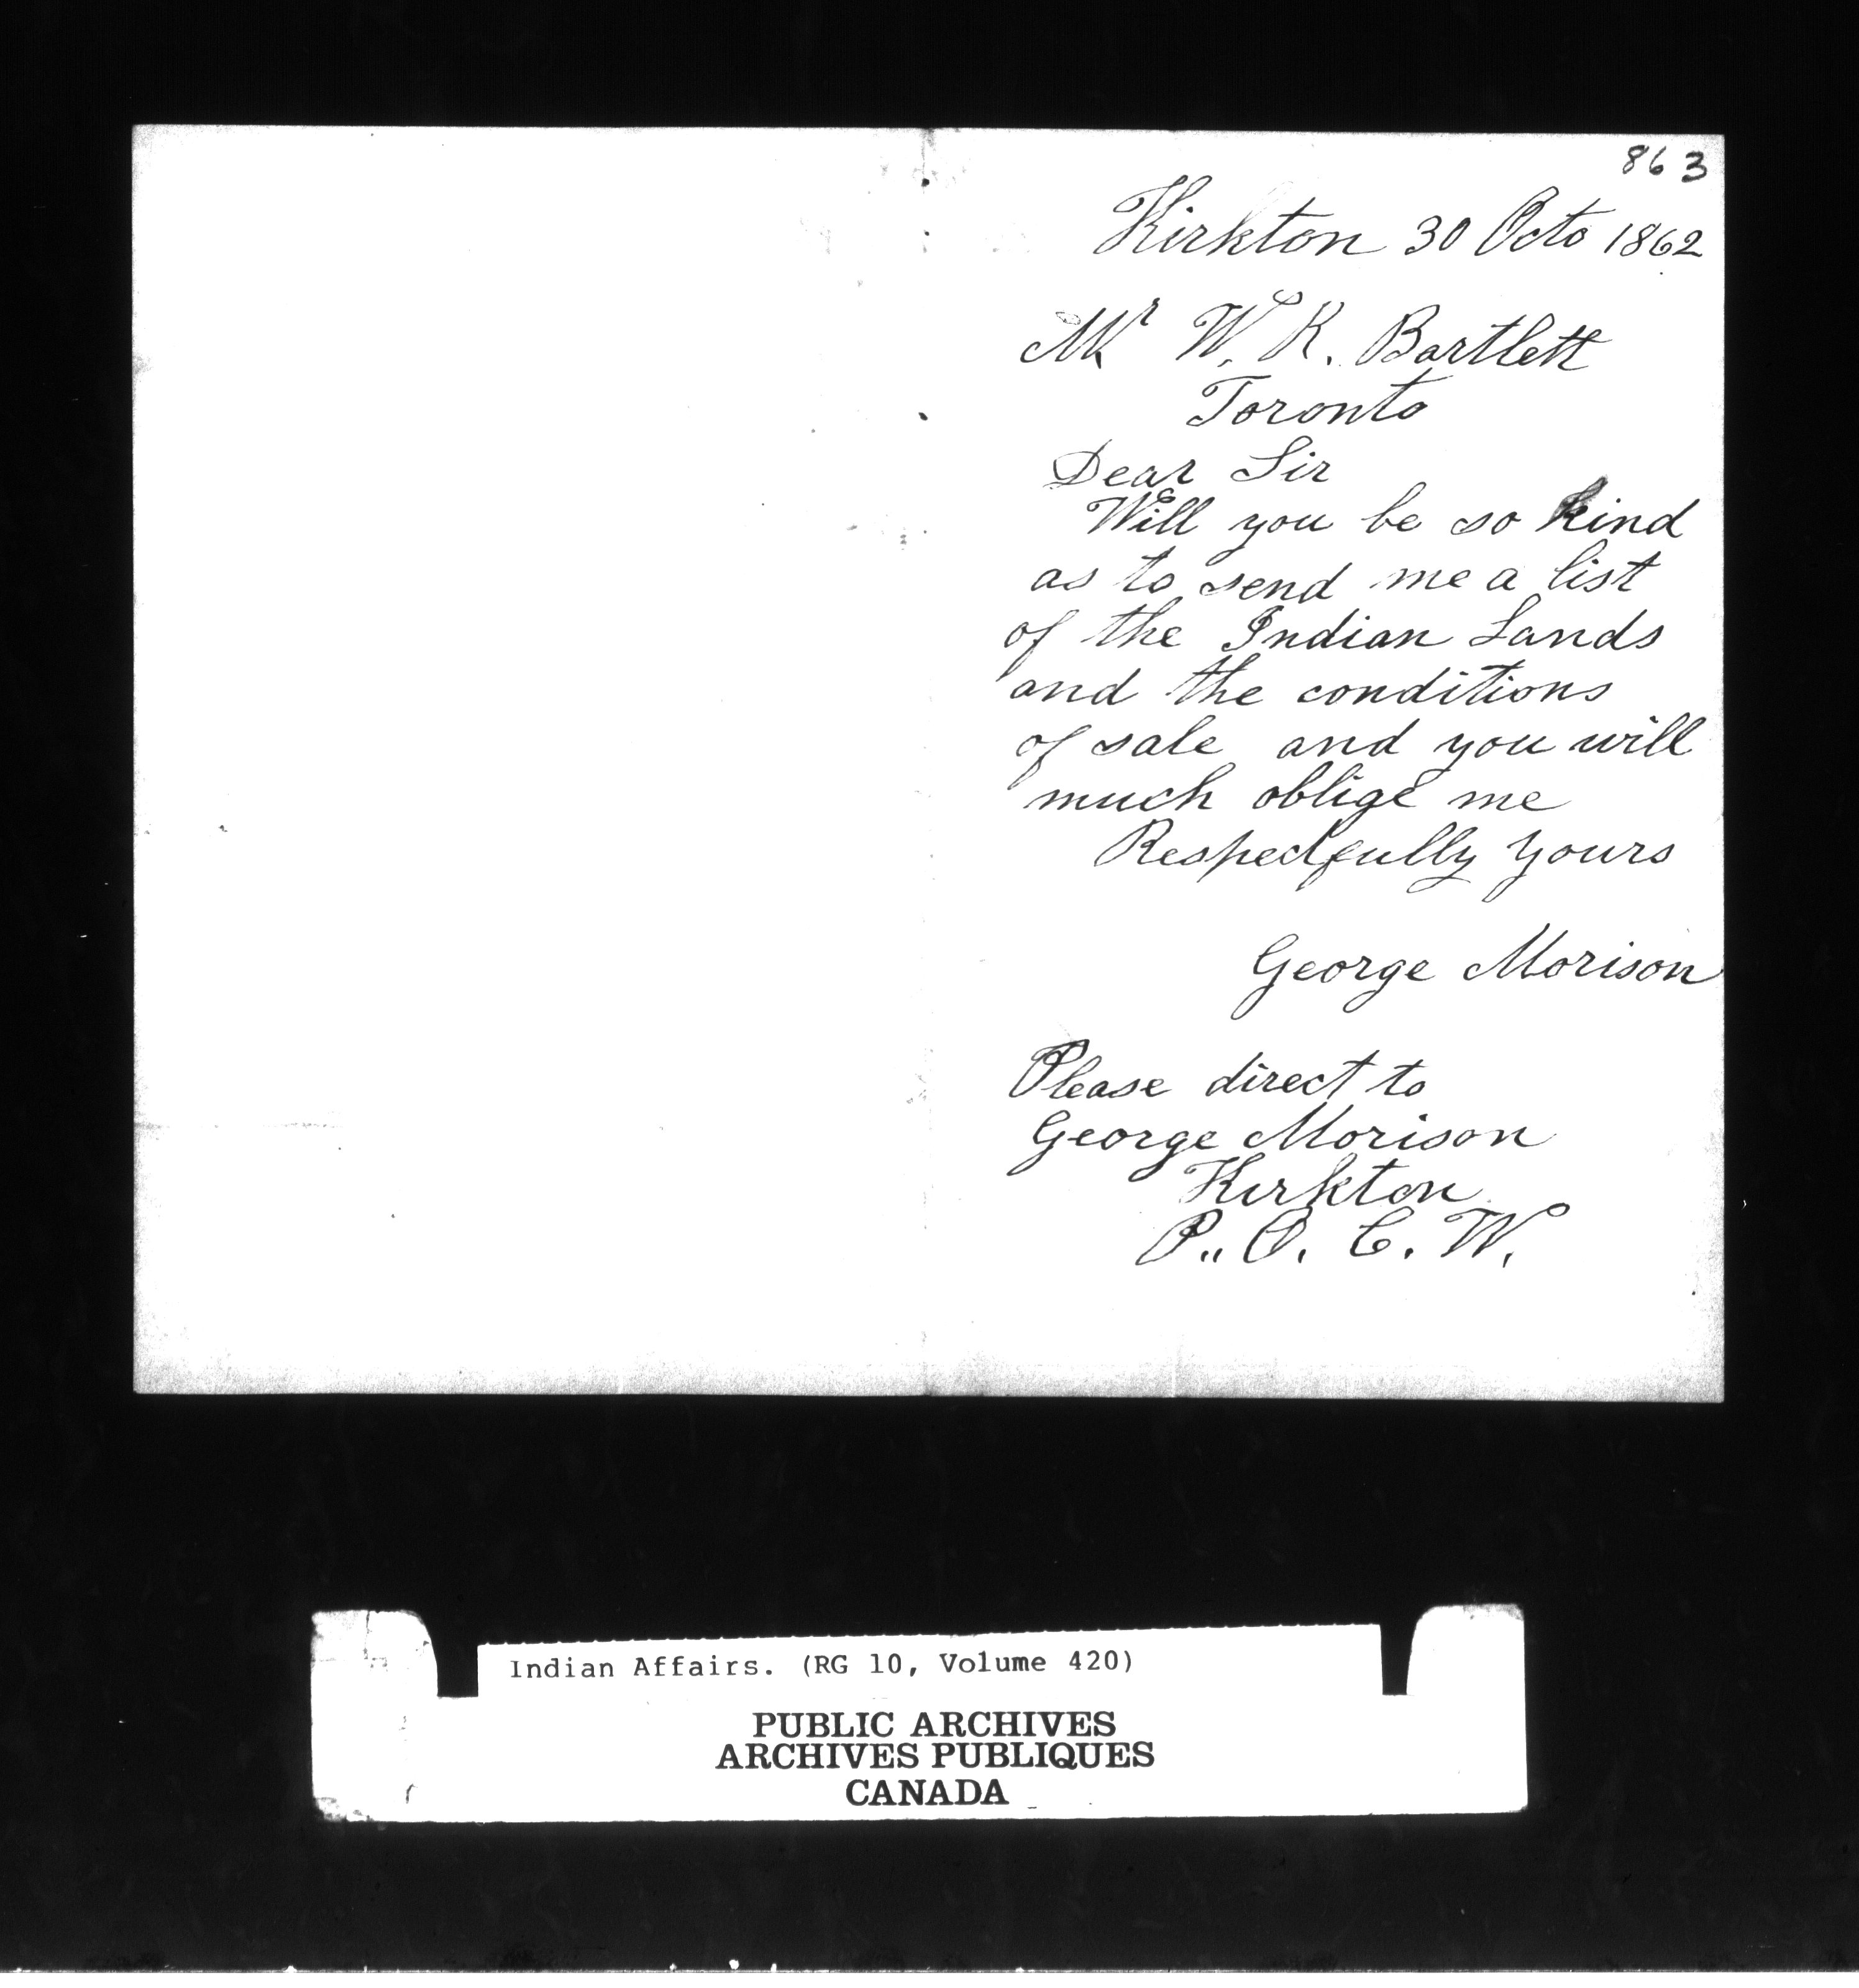 863
Kirkton 30 Octo 1862
Mr W. R. Bartlett
Toronto
Dear Sir
Will you be so kind
as to send me a list
of the Indian Lands
and the conditions
of sale and you will
much oblige me
Respectfully yours
George Morison
Please direct to
George Morison
Kirkton
P.. O. C. W.
Indian Affairs. (RG 10, Volume 420)
PUBLIC ARCHIVES
ARCHIVES PUBLIQUES
CANADA